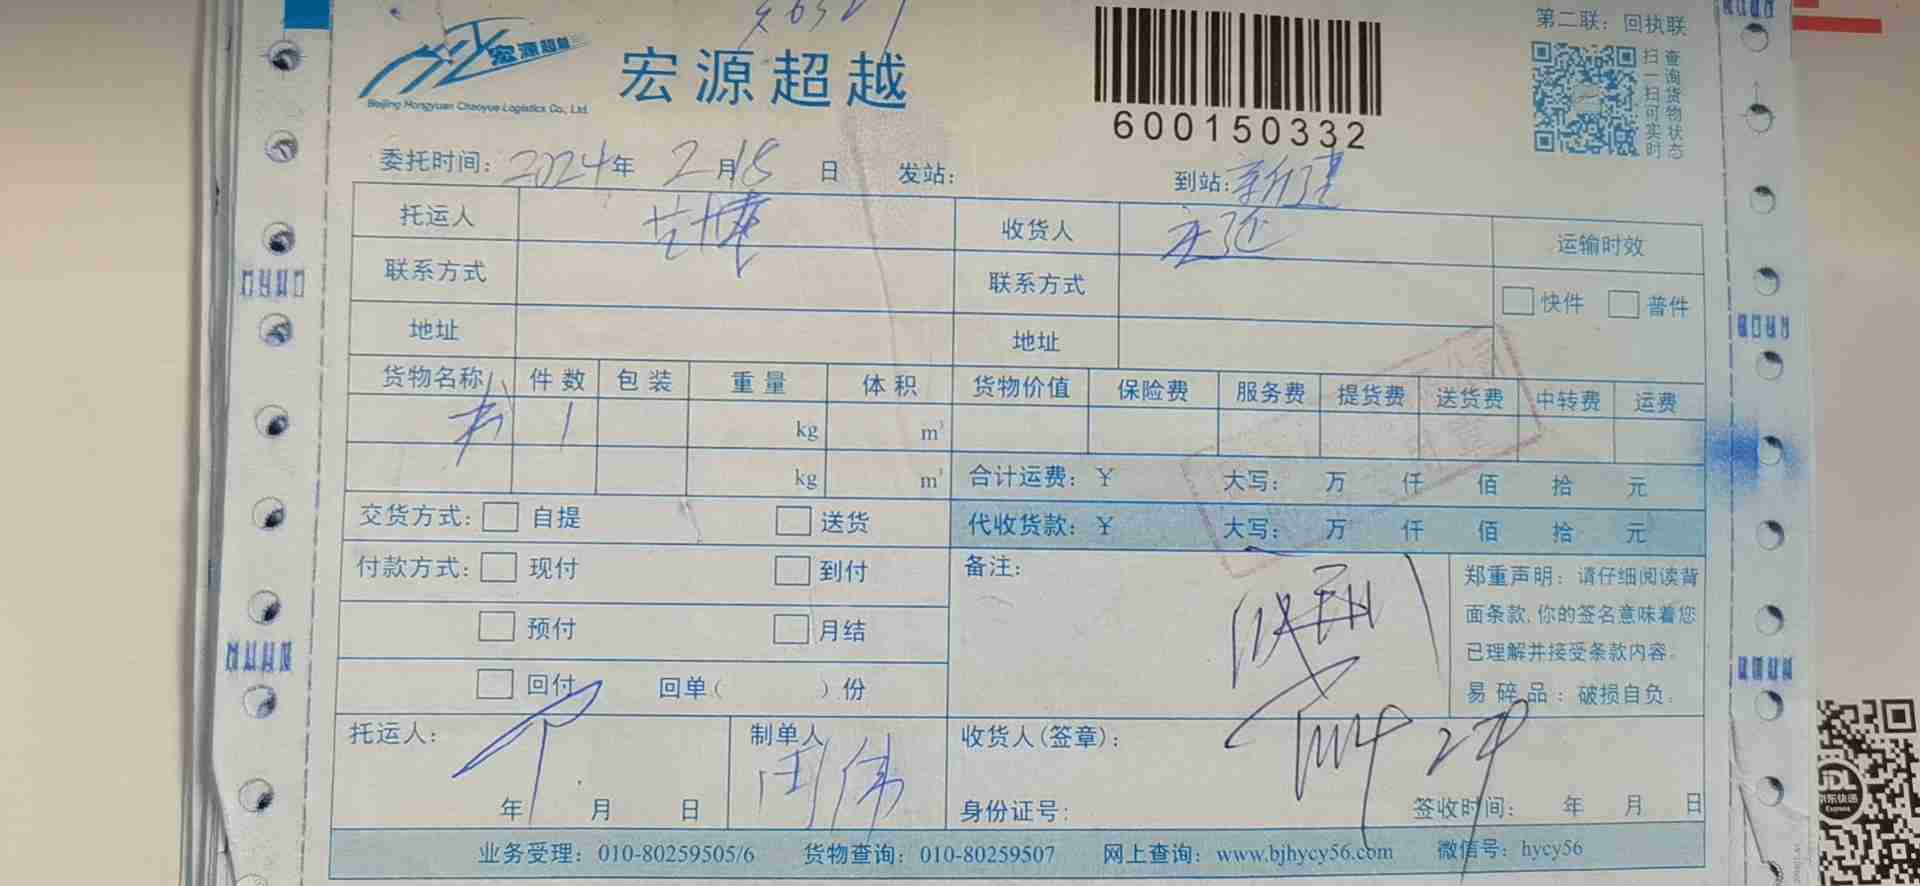 宏源超越
Beijing Hongyuan Chaoyue Logistics Co., Ltd.
宏源超越
600150332
第二联：回执联
扫一扫可实时
查询货物状态
委托时间：2024年 2月18日 发站： 到站：新建
托运人 收货人 运输时效
联系方式 联系方式 快件 普件
地址 地址
货物名称 件数 包装 重量 体积 货物价值 保险费 服务费 提货费 送货费 中转费 运费
书 1 kg m³
kg m³ 合计运费：￥ 大写： 万 仟 佰 拾 元
交货方式： 自提 送货 代收货款：￥ 大写： 万 仟 佰 拾 元
付款方式： 现付 到付 备注：
预付 月结
回付 回单（ ）份
郑重声明：请仔细阅读背
面条款，你的签名意味着您
已理解并接受条款内容。
易碎品：破损自负.
托运人： 制单人 收货人(签章)：
闫伟
年 月 日 身份证号： 签收时间： 年 月 日
业务受理：010-80259505/6 货物查询：010-80259507 网上查询：www.bjhycy56.com 微信号：hycy56
京东快递
Express